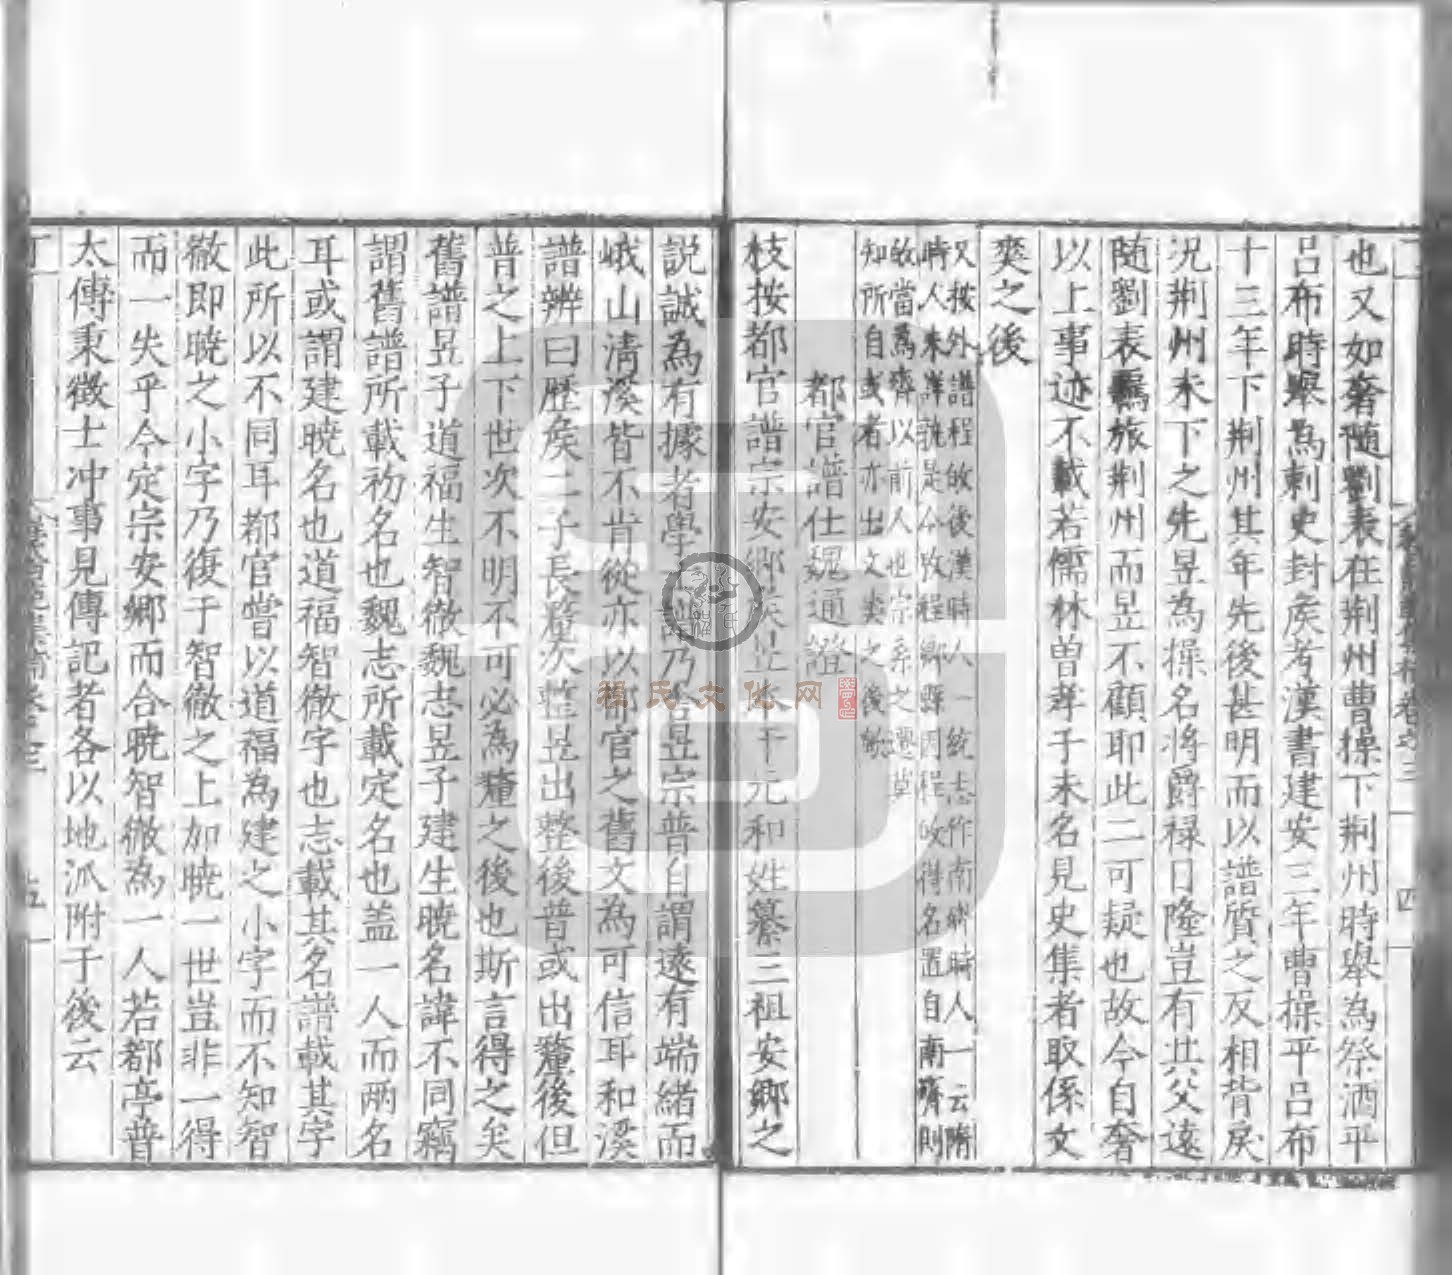 也又如奢隨劉表在荆州曹操下荆州時舉為祭酒平
呂布時舉為刺史封侯考漢書建安三年曹操平呂布
十三年下荆州其年先後甚明而以譜質之反相背戾
況荆州未下之先昱為操名將爵祿日隆豈有其父遠
隨劉表羈旅荆州而昱不顧耶此二可疑也故今自奢
以上事迹不載若儒林曾孝子未名見史集者取係文
奕之後
又按外譜程的後漢時人一統志作南齊時人一云隋
時人未詳孰是今攷程鄉縣因程旼得名置自南齊則
旼當為齊以前人也宗系之遷草
知所自或者亦出文奕之後歟
都官譜仕魏通證
枝按都官譜宗安鄉侯昱本于元和姓纂三祖安鄉之
說誠為有據者學譜乃舍昱宗普自謂遠有端緒而
峨山清溪皆不肯從亦以都官之舊文為可信耳和溪
譜辨曰歷矦二子長釐次整昱出整後普或出釐後但
普之上下世次不明不可必為釐之後也斯言得之矣
舊譜昱子道福生智徹魏志昱子建生曉名諱不同竊
謂舊譜所載初名也魏志所載定名也盖一人而兩名
耳或謂建曉名也道福智徹字也志載其名譜載其字
此所以不同耳都官嘗以道福為建之小字而不知智
徹即曉之小字乃復于智徹之上加曉一世豈非一得
而一失乎今定宗安鄉而合曉智徹為一人若都亭普
太傳秉徵士冲事見傳記者各以地派附于後云
卷之三
四
五
程氏文化网